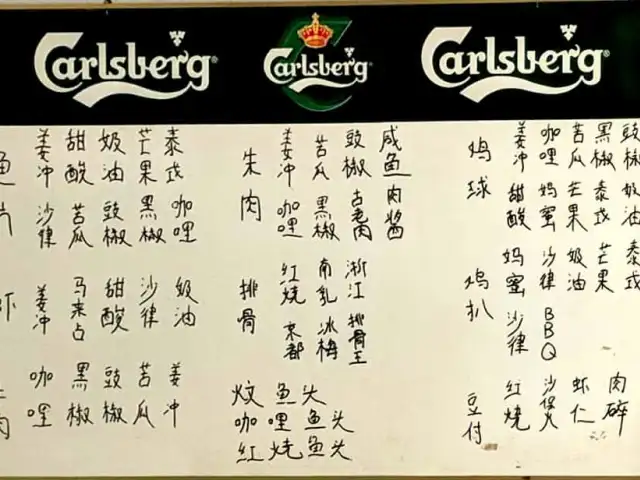 Carlsberg
Carlsberg
Carlsberg
鱼片
姜冲 甜酸 奶油 芒果 泰式
沙律 苦瓜 豉椒 黑椒 咖哩
虾
姜冲 马来占 甜酸 沙律 奶油
肉
咖哩 黑椒 豉椒 苦瓜 姜冲
朱肉
姜冲 苦瓜 豉椒 咸鱼
咖哩 黑椒 古老肉 肉酱
排骨
红烧 南乳 浙江
京都 冰梅 排骨王
炆魚头
咖哩鱼头
红烧鱼头
鸡球
姜冲 咖哩 苦瓜 黑椒 豉椒
甜酸 妈蜜 芒果 泰式 奶油
鸡扒
妈蜜 沙律 奶油 芒果 泰式
沙律 BBQ
豆付
红烧 沙煲 虾仁 肉碎